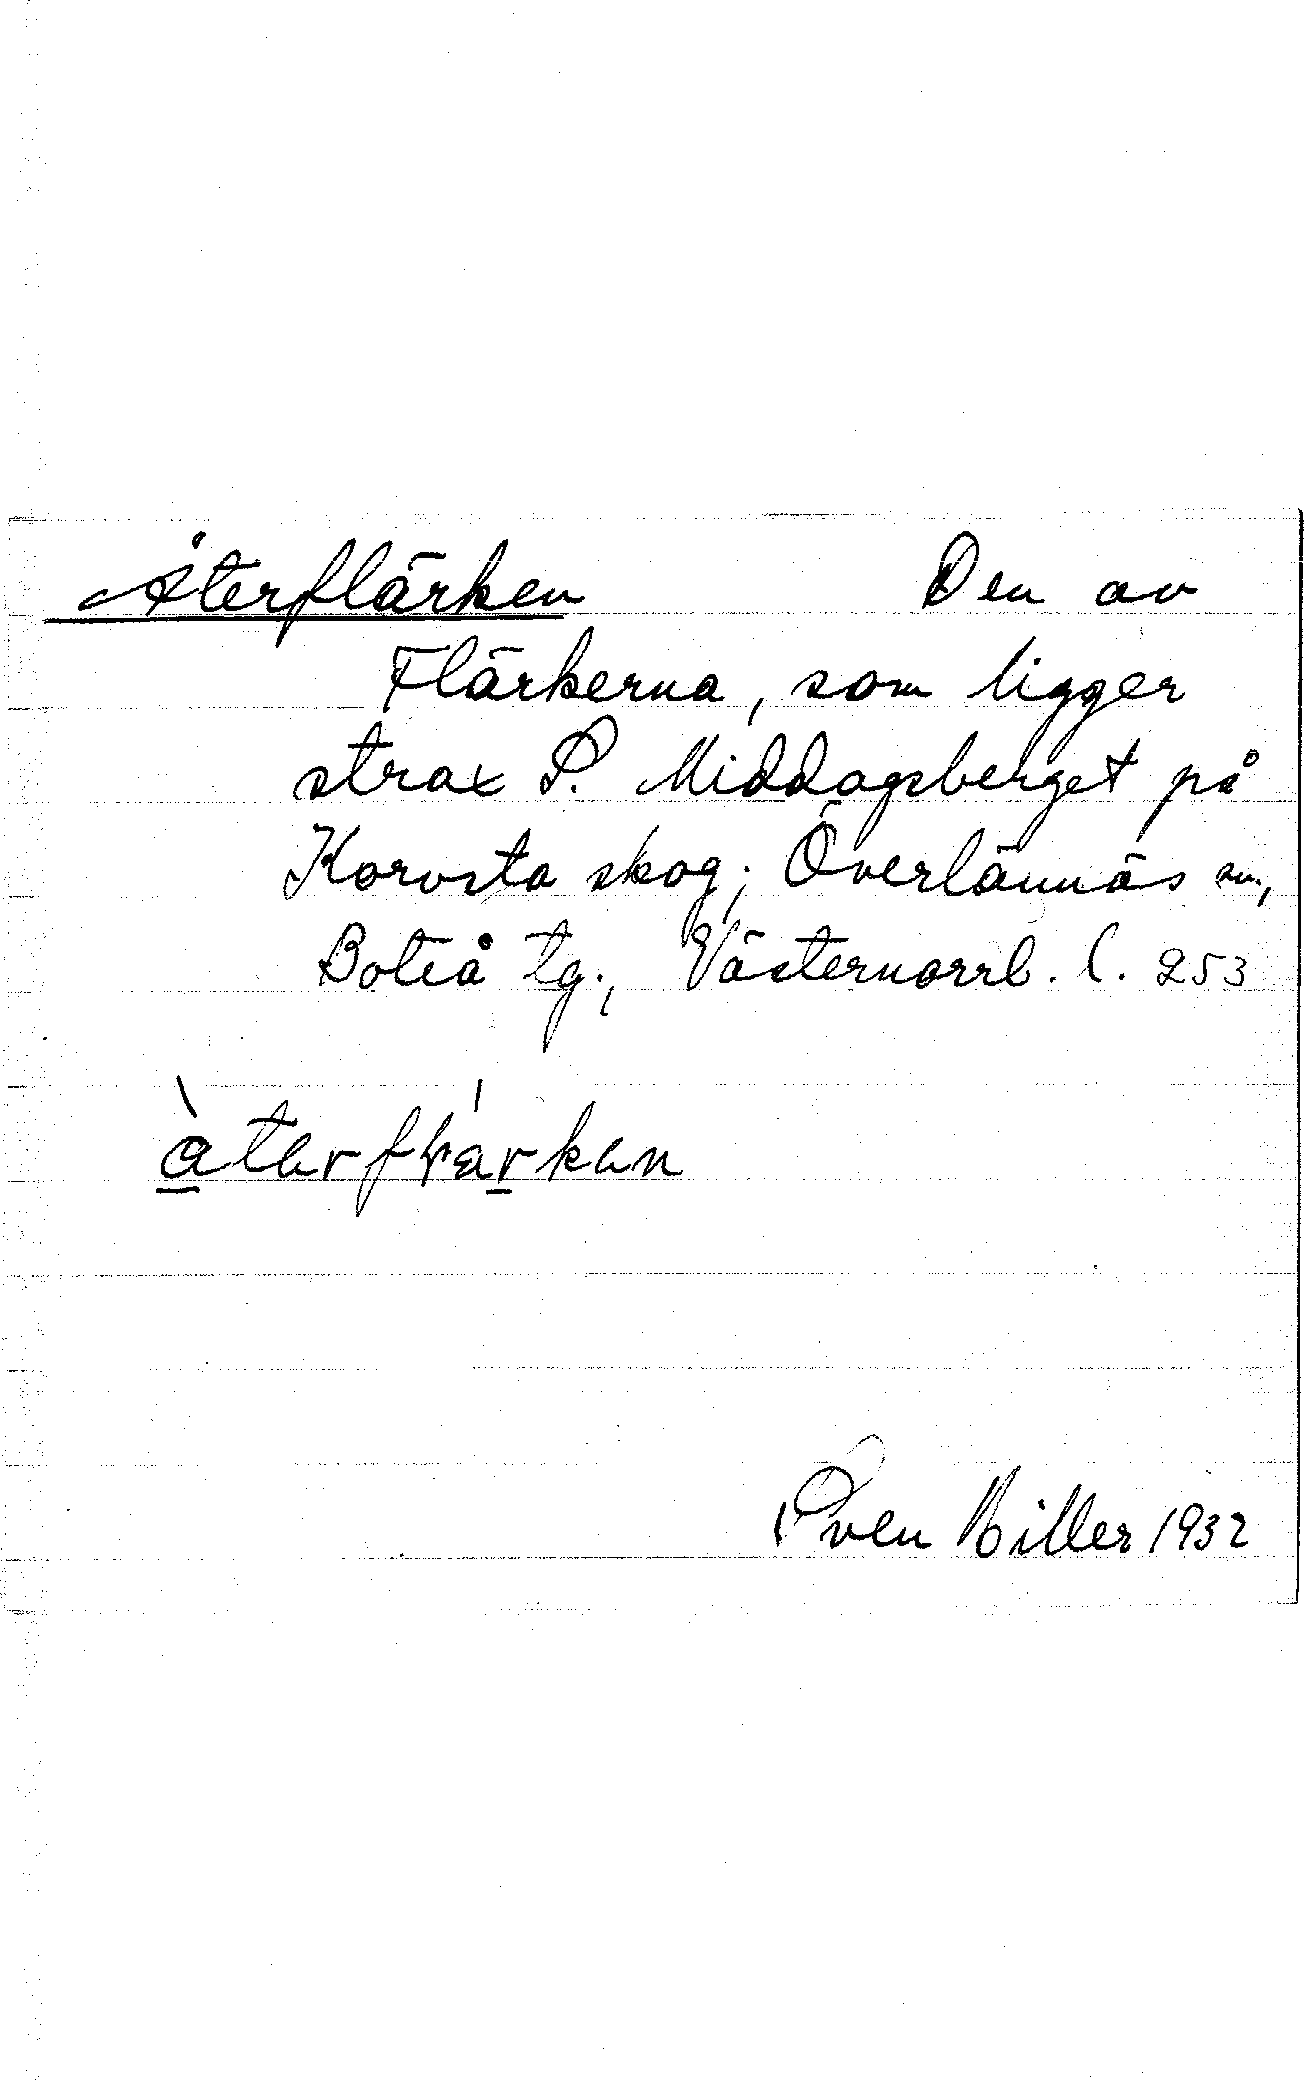 Återflärken Den av
Flärkerna, som ligger
strax S. Middagsberget på
Korvsta skog; Överlännäs sn.,
Boteå tg., Västernorrl. l. 253
Sven Hiller 1932